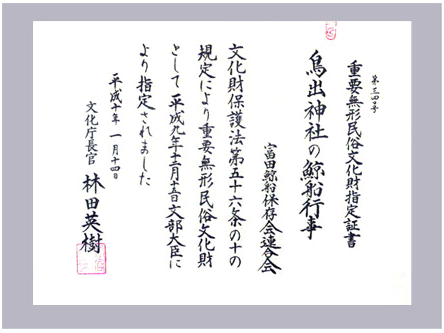 第三四号
重要無形民俗文化財指定証書
鳥出神社の鯨船行事
富田鯨船保存会連合会
文化財保護法第五十六条の十の
規定により重要無形民俗文化財
として平成九年十二月十五日文部大臣に
より指定されました
平成十年一月十四日
文化庁長官 林田英樹